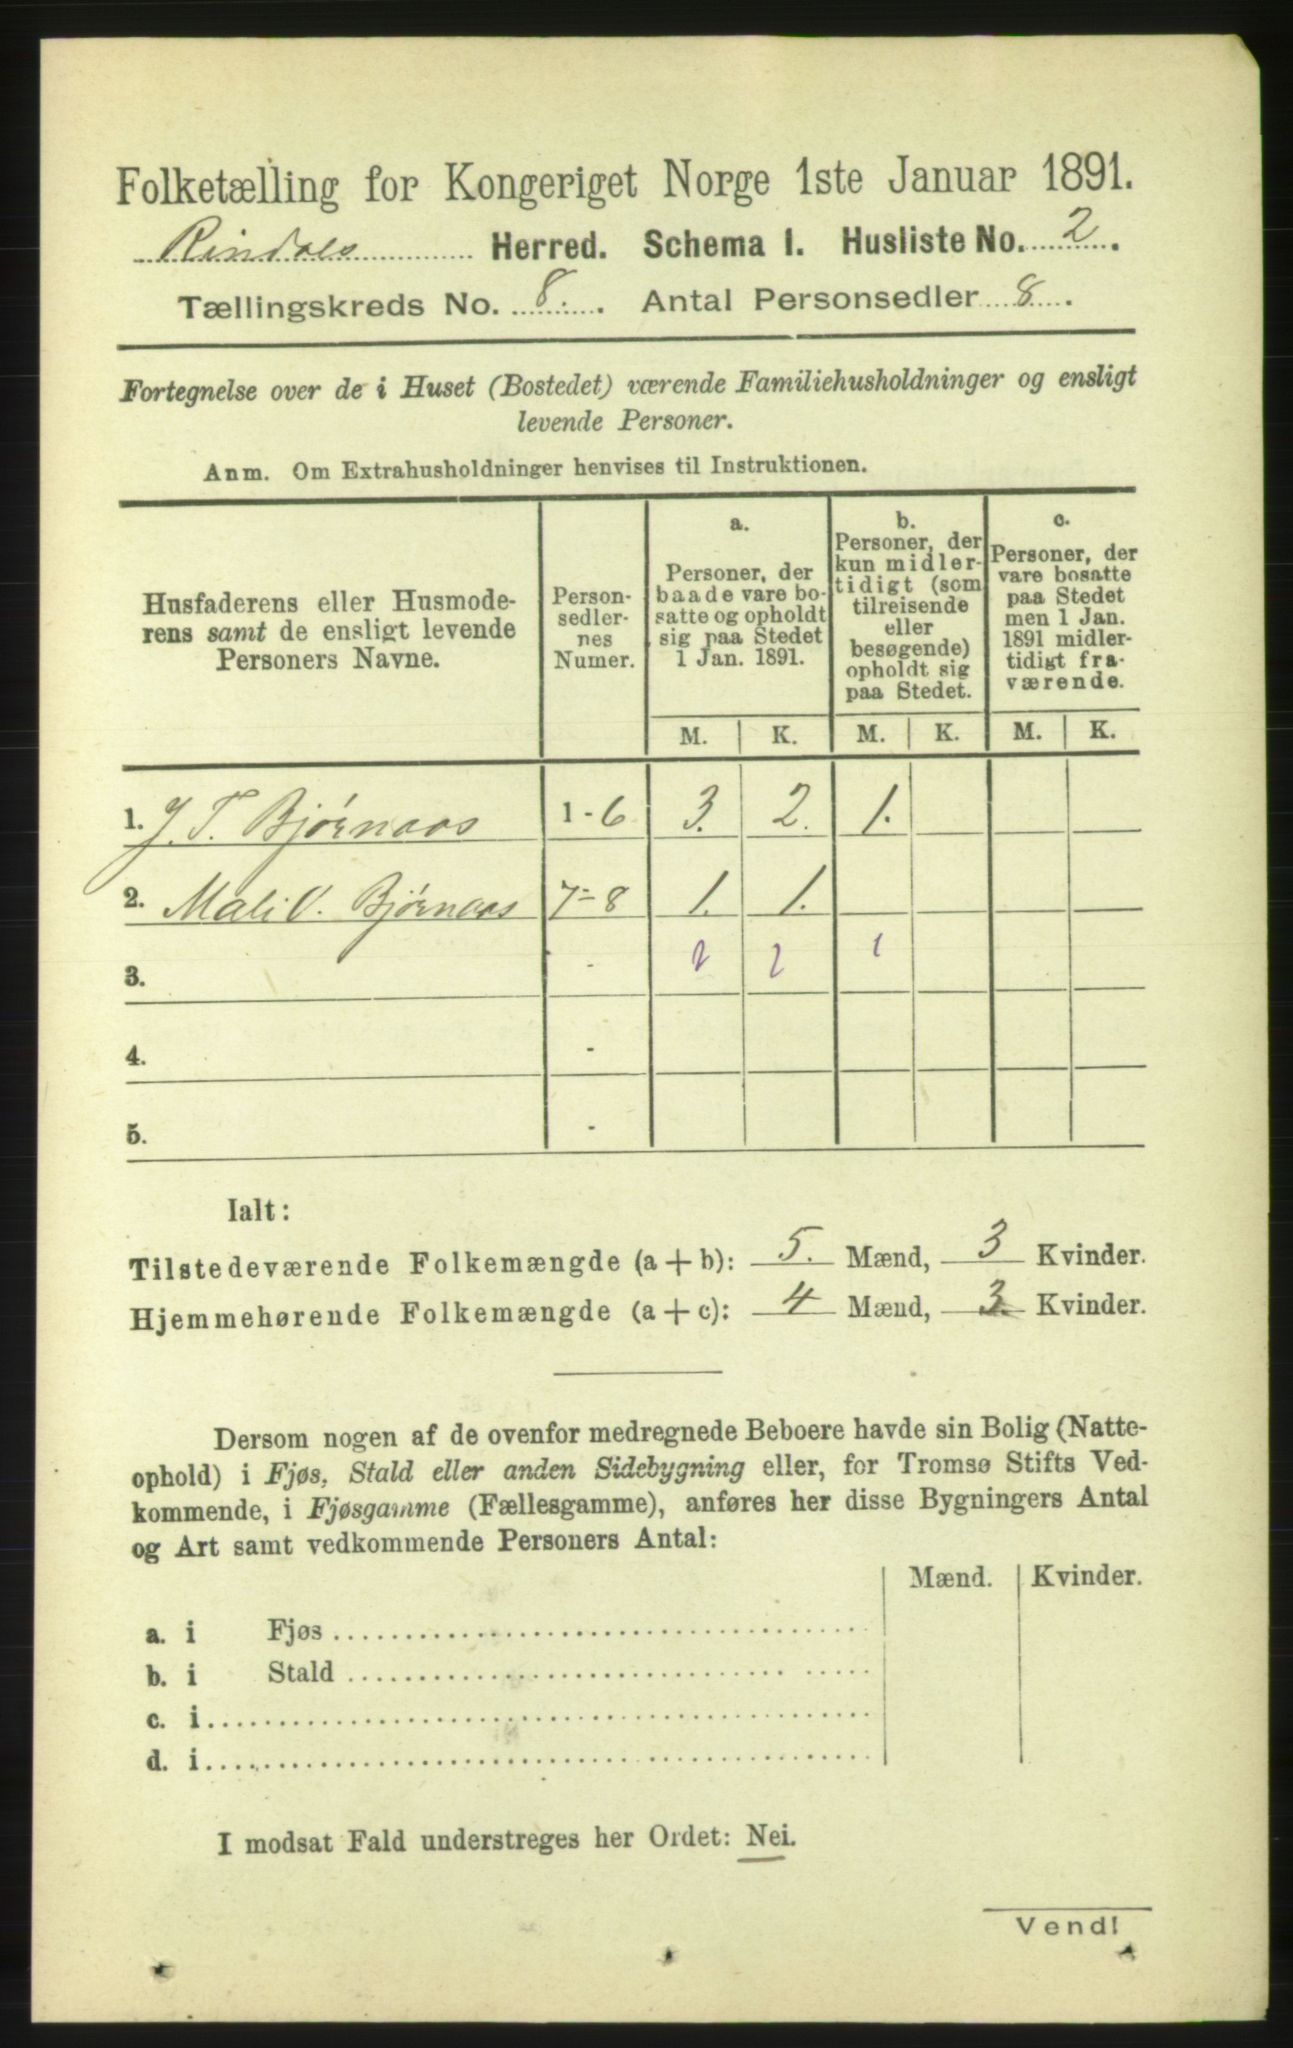 Folketælling for Kongeriget Norge 1ste Januar 1891.
Rindals Herred. Schema I. Husliste No. 2.
Tællingskreds No. 8. Antal Personsedler 8.
Fortegnelse over de i Huset (Bostedet) værende Familiehusholdninger og ensligt
levende Personer.
Anm. Om Extrahusholdninger henvises til Instruktionen.
Husfaderens eller Husmode-
rens samt de ensligt levende
Personers Navne.
Person-
sedler-
nes
Numer.
a.
Personer, der
baade vare bo-
satte og opholdt
sig paa Stedet
1 Jan. 1891.
b.
Personer, der
kun midler-
tidigt (som
tilreisende
eller
besøgende)
opholdt sig
paa Stedet.
c.
Personer, der
vare bosatte
paa Stedet
men 1 Jan.
1891 midler-
tidigt fra-
værende.
M. K. M. K. M. K.
1. J. T. Bjørnaas 1-6 3. 2. 1.
2. Mali O. Bjørnaas 7-8 1. 1.
3. - 2 2 1
4. -
5. -
Ialt:
Tilstedeværende Folkemængde (a + b): 5. Mænd, 3 Kvinder.
Hjemmehørende Folkemængde (a + c): 4 Mænd, 3. Kvinder.
Dersom nogen af de ovenfor medregnede Beboere havde sin Bolig (Natte-
ophold) i Fjøs, Stald eller anden Sidebygning eller, for Tromsø Stifts Ved-
kommende, i Fjøsgamme (Fællesgamme), anføres her disse Bygningers Antal
og Art samt vedkommende Personers Antal:
Mænd. Kvinder.
a. i Fjøs
b. i Stald
c. i
d. i
I modsat Fald understreges her Ordet: Nei.
Vend!